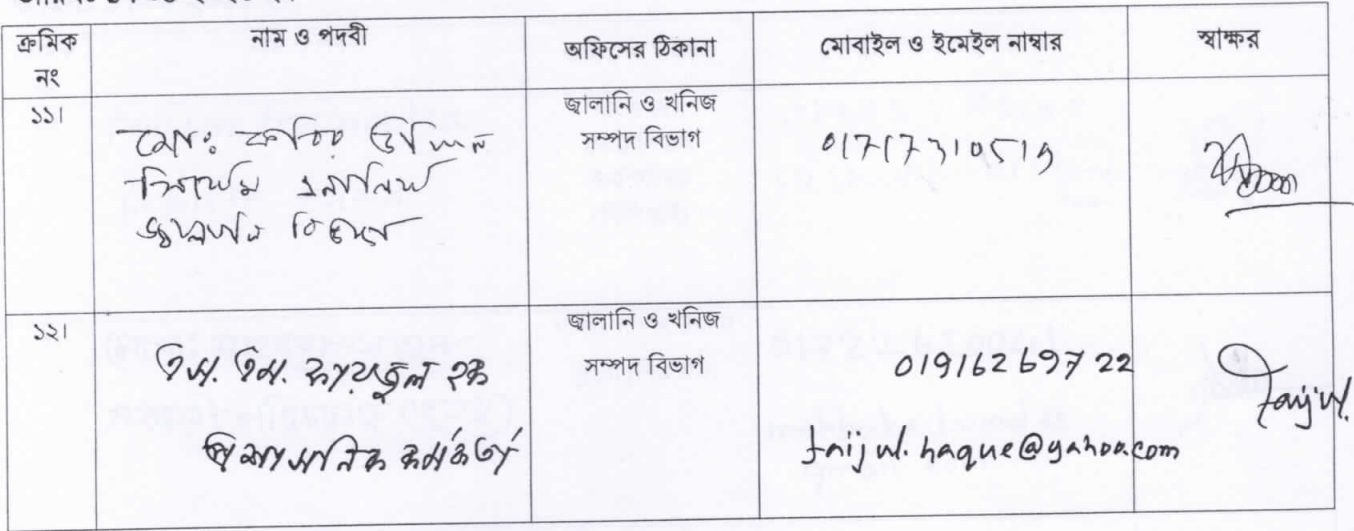 ক্রমিক নং
নাম ও পদবী
অফিসের ঠিকানা
মোবাইল ও ইমেইল নাম্বার
স্বাক্ষর
১১।
মোঃ
জ্বালানি ও খনিজ
সম্পদ বিভাগ
01717310519
১২।
এস. এম. ফায়জুল হক
প্রশাসনিক কর্মকর্তা
জ্বালানি ও খনিজ
সম্পদ বিভাগ
01916269722
faijul.haque@yahoo.com
Faijul.